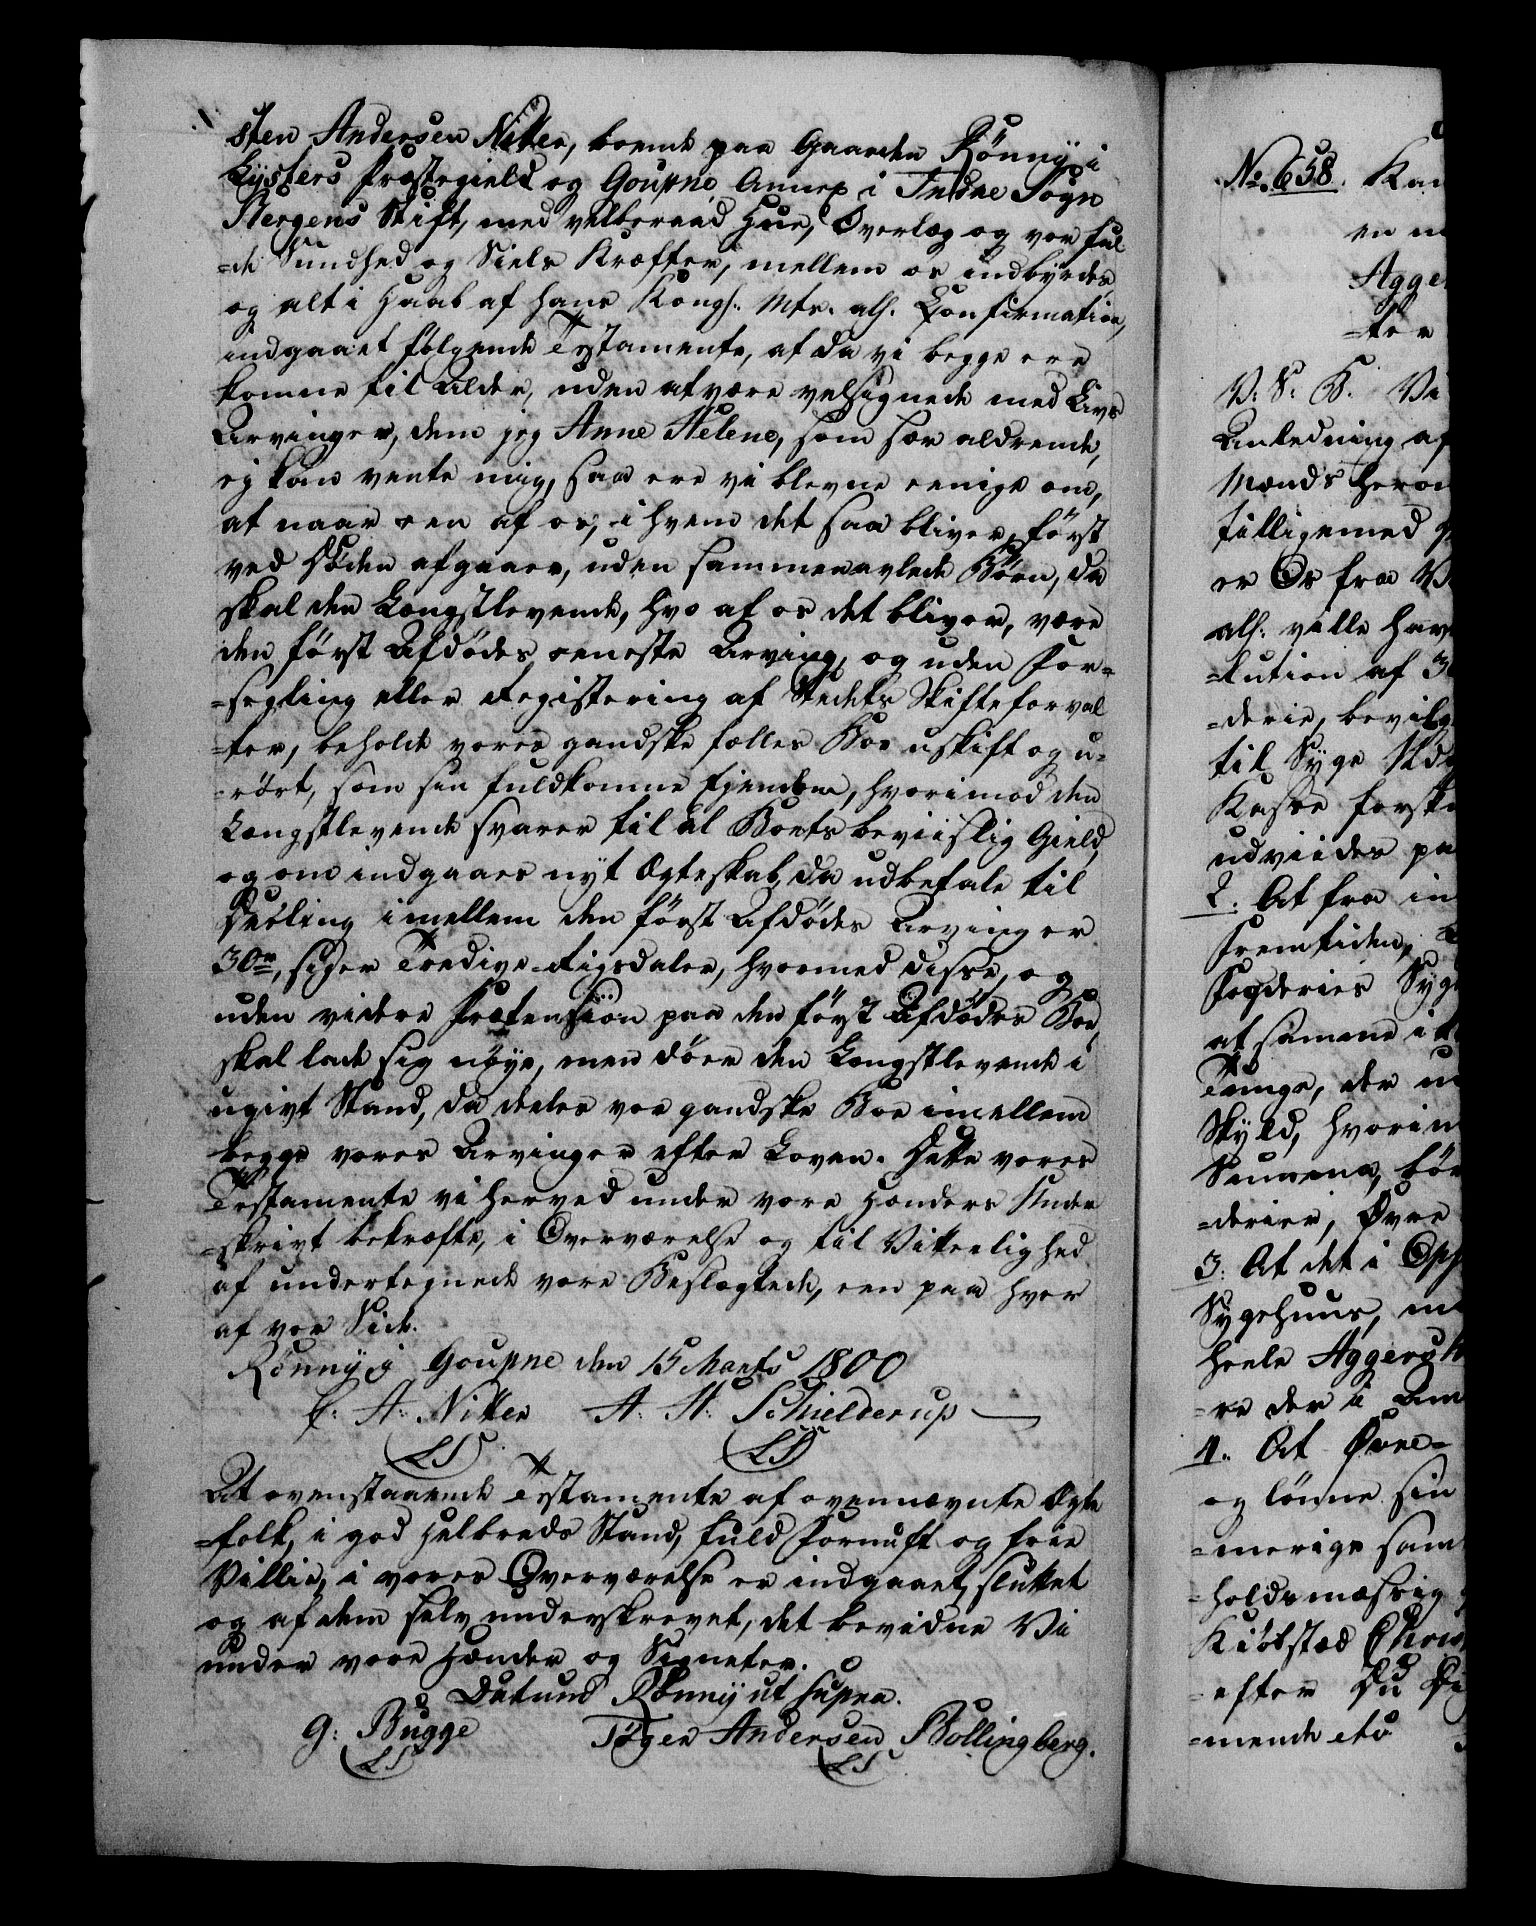 sten Andersen Nitter, boende paa Gaarden Rönnÿ i
Lÿsters Præstegield og Goupne Annex i Indre Sogn
Bergens Stift, med velberaad Hue, Overlæg og vor ful
=de Sundhed og Siels Kræfter, mellem os indbyrdes
og alt i Haab af Hans Kongl: Mts. all. Confirmation,
indgaaet fölgende Testamente, at da vi begge ere
komne til Alder, uden at være velsignede med Livs
Arvinger, dem jeg Anne Helene, som her aldrende,
ej kan vente mig, saa ere vi blevne eenige om,
at naar een af os, i hvem det saa bliver, först
ved Döden afgaaer, uden sammenavlede Börn, da
skal den Længstlevende, hvo af os det bliver, være
den först Afdödes eeneste Arving, og uden For=
=segling eller Registering af Stedets Skifteforval
=ter, beholde vores gandske fælles Boe uskift og u=
=rört, som sin fuldkomne Ejendom, hvorimod den
Længstlevende svarer til al Boets beviislig Gield,
og om indgaaes nyt Ægteskab, da udbetale til
Deeling imellem den först Afdödes Arvinger
30rdr, siger Tredive Rigsdaler, hvormed disse, og
uden videre Prætension paa den först Afdödes Boe,
skal lade sig nöye, men döer den Længstlevende i
ugivt Stand, da deeles vor gandske Boe imellem
begge vores Arvinger efter Loven. Dette vores
Testamente vi herved under vore Hænders Under
=skrivt bekræfte, i Overværelse og til Vitterlighed
af undertegnede vore Beslægtede, een paa hver
af vor Side.
Rönnÿ i Goupne den 15 Marts 1800
C: A: Nitter A. H: Schielderup
LS LS
At ovenstaaende Testamente af ovennævnte Ægte
=folk, i god Helbreds Stand, fuld Fornuft og frie
Villie, i vores Overværelse er indgaaet, sluttet
og af dem selv underskrevet, det bevidne Vi
under vore Hænder og Signeter.
Datum Rönnÿ ut supra.
G: Bugge Töger Andersen Bollingberg.
LS LS
No. 658. Kan
en n
Agger
=ter
V: S: B. Vi
Anledning af
Mænds herom
tilligemed
er Os fra V
all: ville hav
=lution af 3
=derie, bevilg
til Syge
Kasse forsk
udviides pa
2. At fra in
Fremtiden,
Fogderies Syg
at samme i
Tvinge, der u
Skyld, hvorim
Summa, bör
=derier, Övre
3. At det i Opp
Sygehuus, m
heele Aggersh
=re der i Am
4. At Övre=
og lönne sin
=merige sam
=holdsmæssig
Kiöbstæd Chris
=efter Du
=mende etc